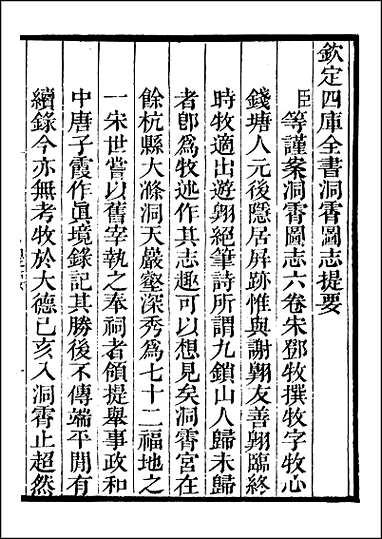 欽定四庫全書洞霄圖志提要
臣等謹案洞霄圖志六卷宋鄧牧撰牧字牧心
錢塘人元後隱居屛跡惟與謝翺友善翺臨終
時牧適出遊翺絕筆詩所謂九鎖山人歸未歸
者卽為牧逃作其志趣可以想見矣洞霄宮在
餘杭縣大滌洞天巖壑深秀為七十二福地之
一宋世嘗以舊宰執之奉祠者領提舉事政和
中唐子霞作眞境錄記其勝後不傳端平閒有
續錄今亦無考牧於大德己亥入洞霄止超然